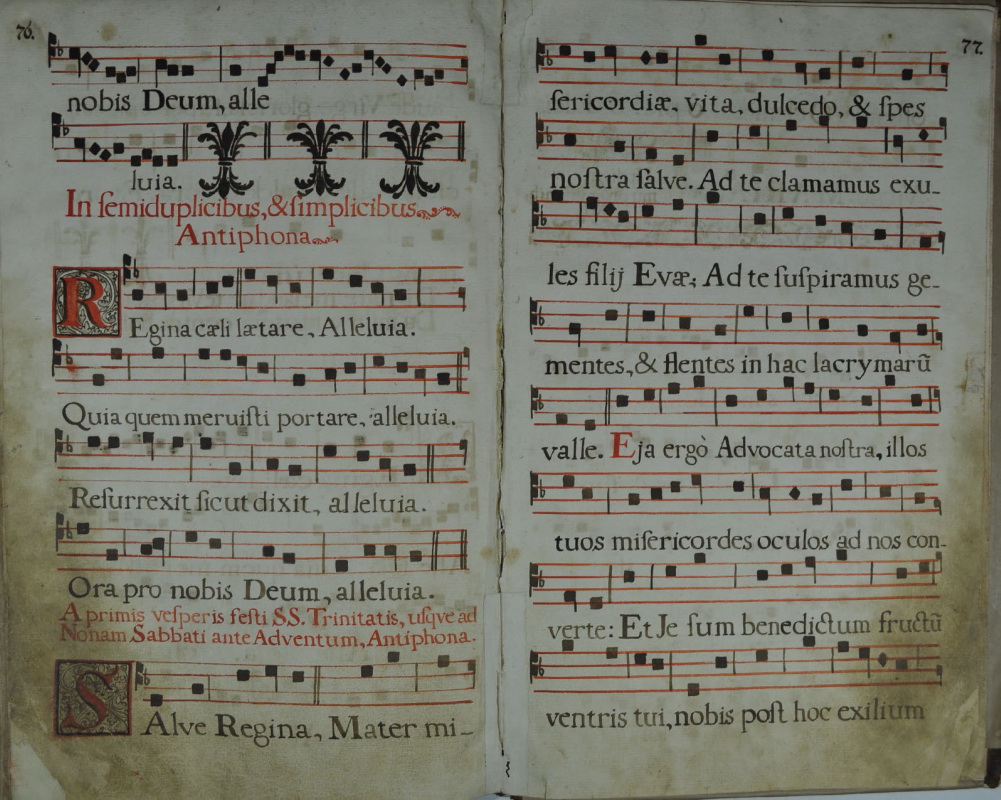 76.
nobis Deum, alle
luia.
In ſemiduplicibus, & ſimplicibus
Antiphona
REgina cæli lætare, Alleluia.
Quia quem meruiſti portare, alleluia.
Reſurrexit ſicut dixit, alleluia.
Ora pro nobis Deum, alleluia.
A primis veſperis feſti SS. Trinitatis, uſqve ad
Nonam Sabbati ante Adventum, Antiphona.
SAlve Regina, Mater mi-
77.
ſericordiæ, vita, dulcedo, & ſpes
noſtra ſalve. Ad te clamamus exu-
les filij Evæ; Ad te ſuſpiramus ge-
mentes, & flentes in hac lacrymarũ
valle. Eja ergò Advocata noſtra, illos
tuos miſericordes oculos ad nos con-
verte: Et Je ſum benedictum fructũ
ventris tui, nobis poſt hoc exilium